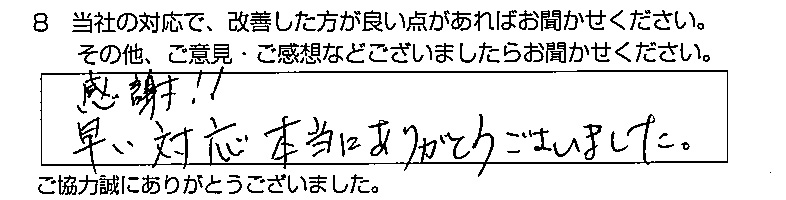 8 当社の対応で、改善した方が良い点があればお聞かせください。
その他、ご意見・ご感想などございましたらお聞かせください。
感謝!!
早い対応本当にありがとうございました。
ご協力誠にありがとうございました。